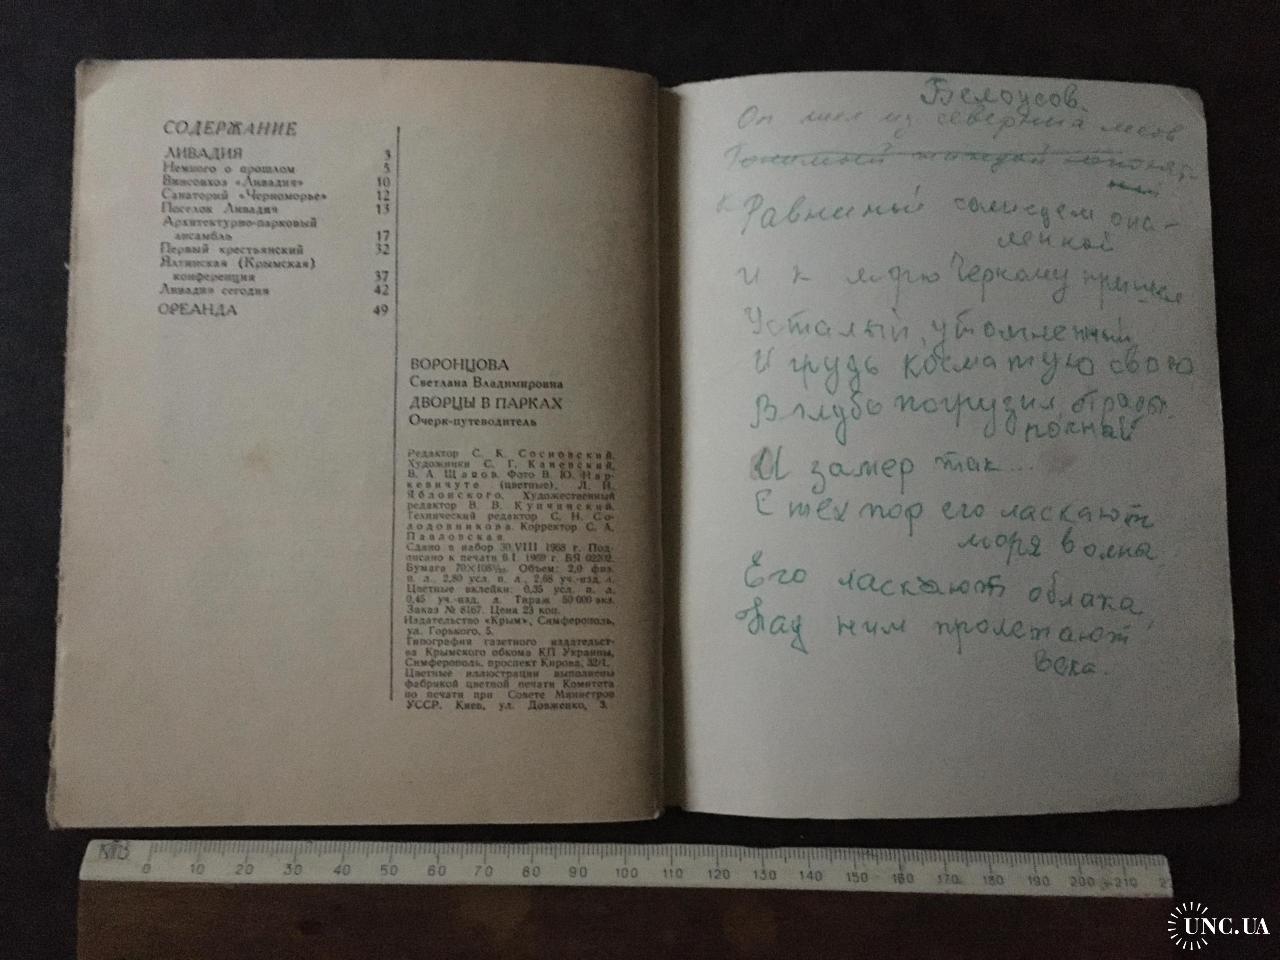 СОДЕРЖАНИЕ
ЛИВАДИЯ 3
Немного о прошлом 5
Винсовхоз «Ливадия» 10
Санаторий «Черноморье» 12
Поселок Ливадия 13
Архитектурно-парковый
ансамбль 17
Первый крестьянский 32
Ялтинская (Крымская)
конференция 37
Ливадия сегодня 42
ОРЕАНДА 49
ВОРОНЦОВА
Светлана Владимировна
ДВОРЦЫ В ПАРКАХ
Очерк-путеводитель
Редактор С. К. Сосновский.
Художники С. Г. Каневский,
В. А. Щапов. Фото В. Ю. Нар-
кевичуте (цветные), Л. И.
Яблонского. Художественный
редактор В. В. Купчинский.
Технический редактор С. Н. Со-
лодовникова. Корректор С. А.
Павловская.
Сдано в набор 30.VIII 1968 г. Под-
писано к печати 6.I. 1969 г. БЯ 02202.
Бумага 70×108¹/₃₂. Объем: 2,0 физ.
п. л., 2,80 усл. п. л., 2,68 уч.-изд. л.
Цветные вклейки: 0,35 усл. п. л.
0,45 уч.-изд. л. Тираж 50 000 экз.
Заказ № 8167. Цена 23 коп.
Издательство «Крым», Симферополь,
ул. Горького, 5.
Типография газетного издательст-
ва Крымского обкома КП Украины,
Симферополь, проспект Кирова, 32/1.
Цветные иллюстрации выполнены
фабрикой цветной печати Комитета
по печати при Совете Министров
УССР. Киев, ул. Довженко, 3.
Белоусов.
Он шел из северных лесов
Гонимый жаждой
Равниной солнцем опа-
ленной
И к морю Черному пришел
Усталый, утомленный
И грудь косматую свою
В глубь погрузил
И замер так...
С тех пор его ласкают
моря волны
Его ласкают облака,
Над ним пролетают
века.
0 10 20 30 40 50 60 70 80 90 100 110 120 130 140 150 160 170 180 190 200 210
UNC.UA